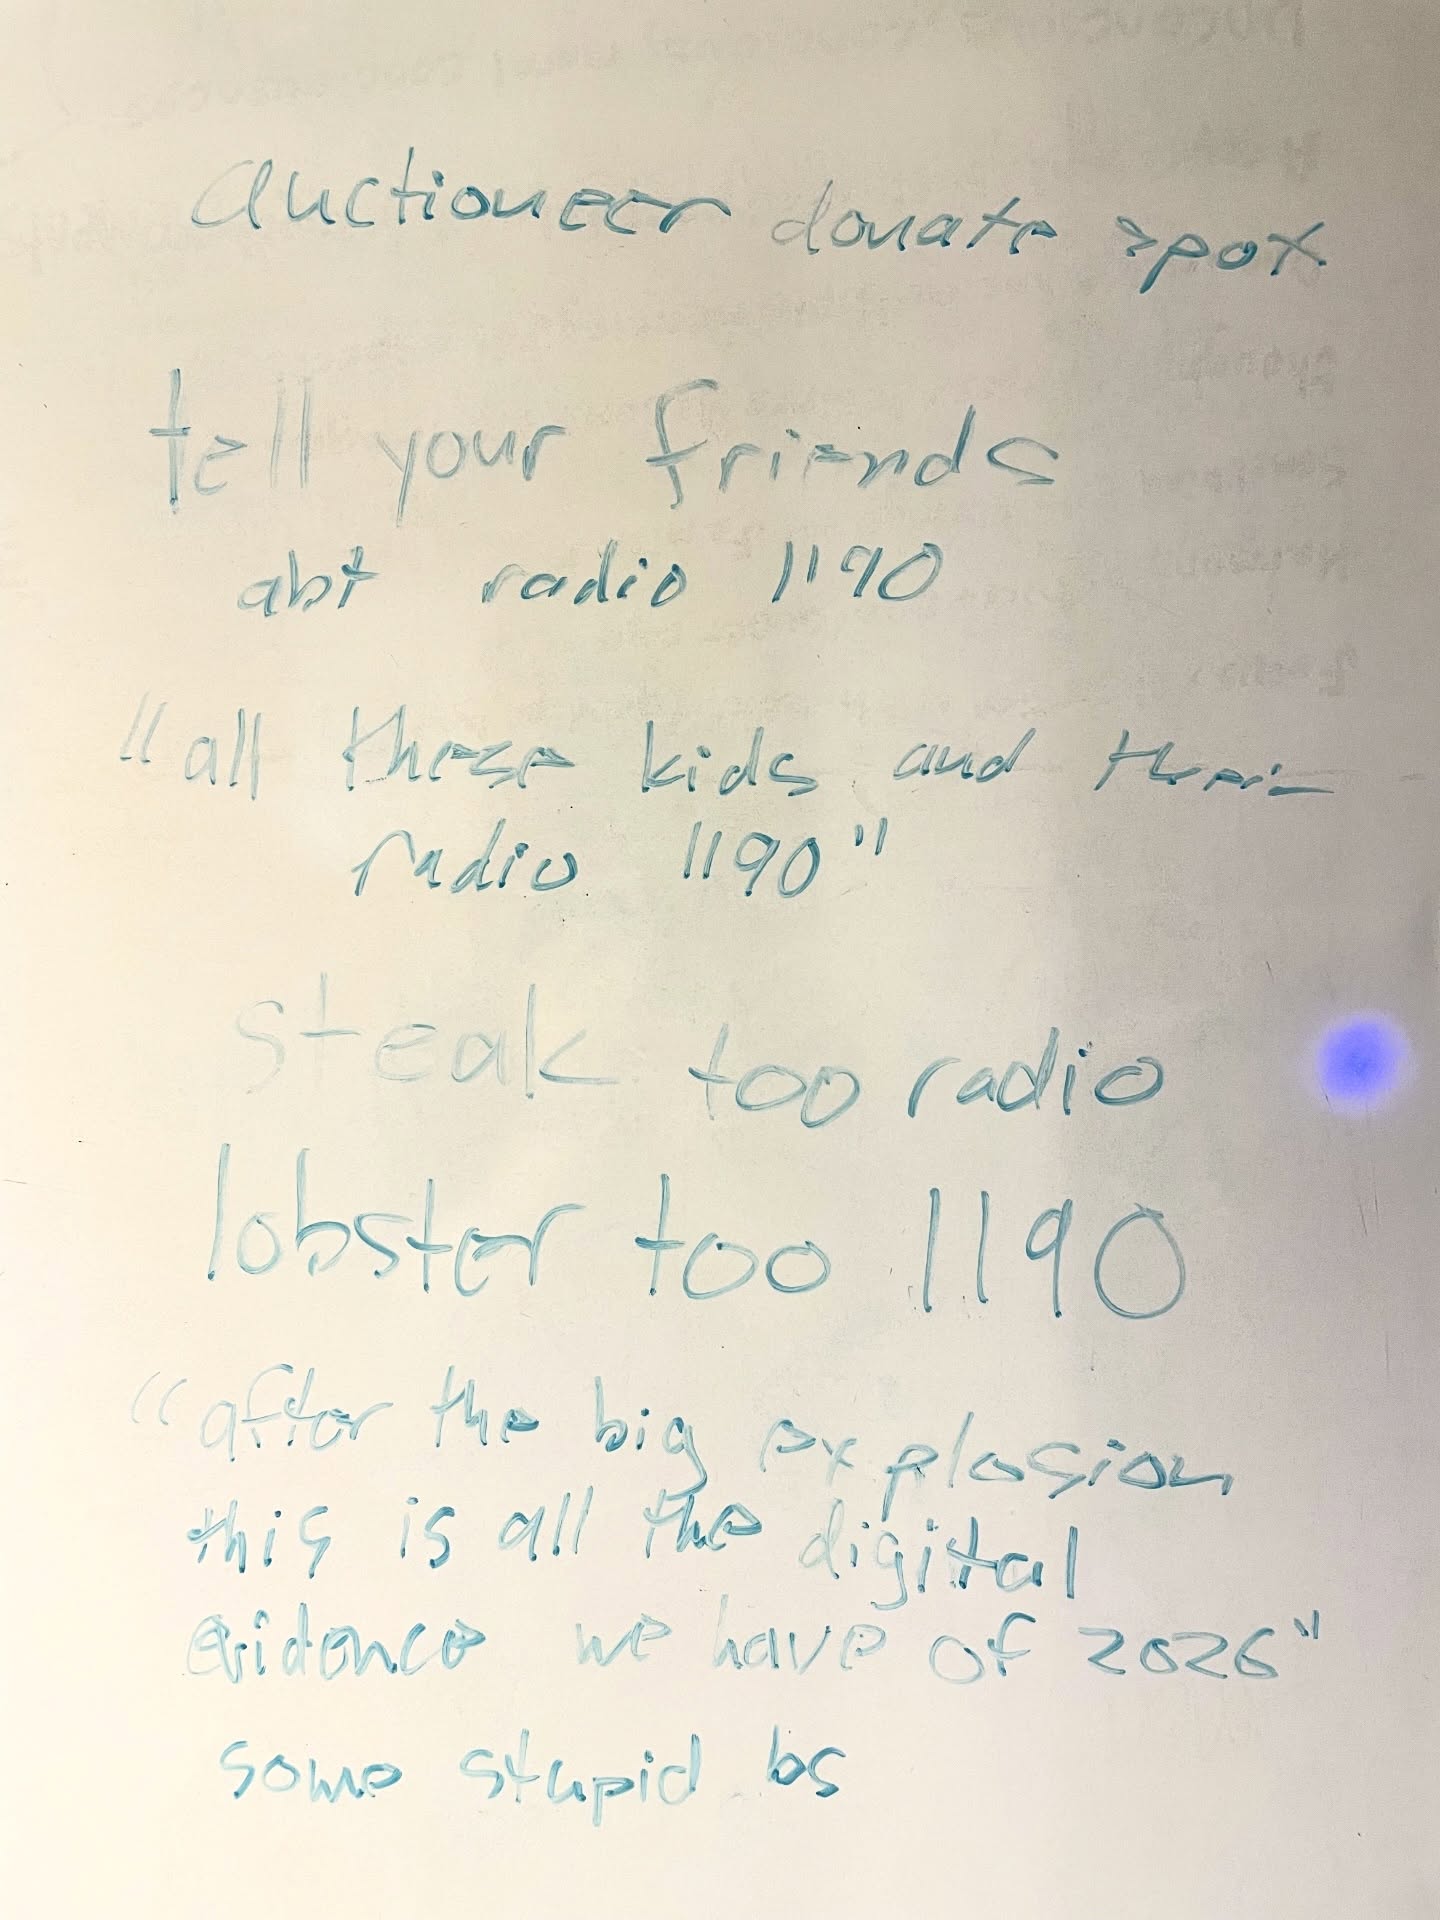 auctioneer donate spot
tell your friends
abt radio 1190
"all these kids and their
radio 1190"
steak too radio
lobster too 1190
"after the big explosion
this is all the digital
evidence we have of 2026"
some stupid bs